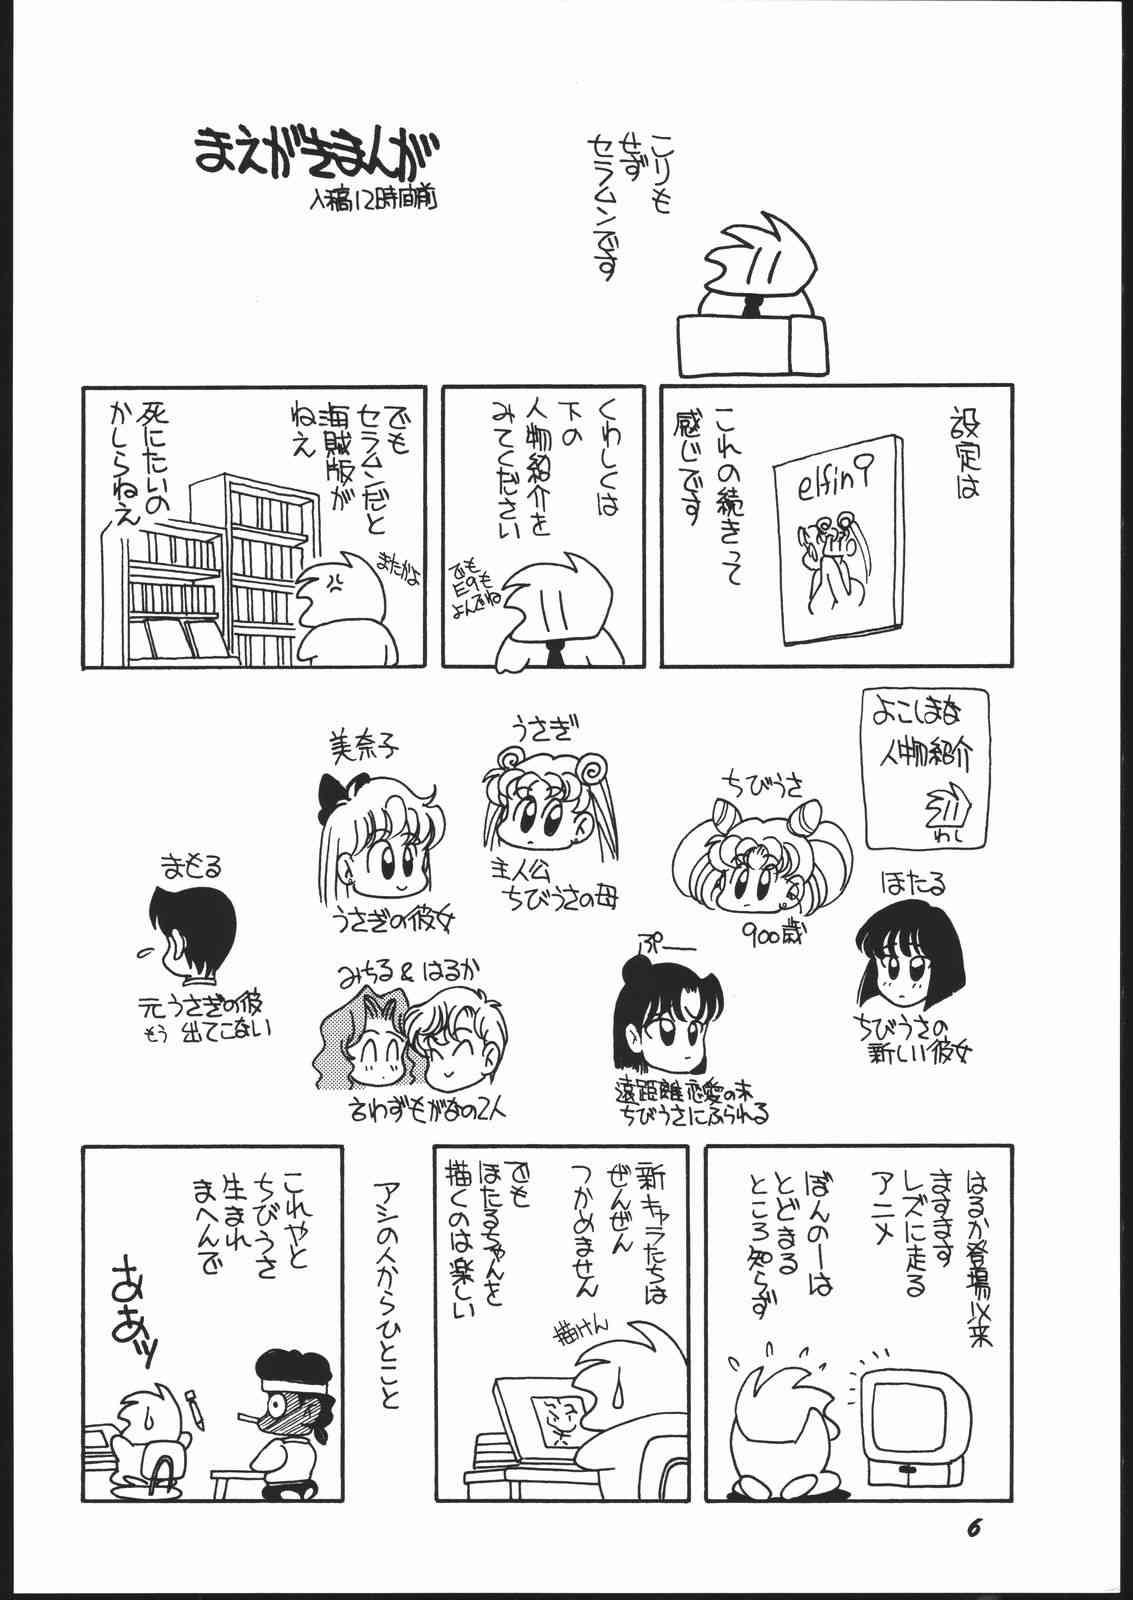 まえがきまんが
入稿12時間前
こりも
せず
セラムンです
設定は
elfin
これの続きって
感じです
くわしくは
下の
人物紹介を
みてください
でも
P9も
よんでね
でも
セラムンだと
海賊版が
ねえ
死にたいの
かしらねえ
またかよ
よこしまな
人物紹介
わし
ちびうさ
900歳
うさぎ
主人公
ちびうさの母
美奈子
うさぎの彼女
まもる
元うさぎの彼
もう出てこない
ほたる
ちびうさの
新しい彼女
ぷー
遠距離恋愛の末
ちびうさにふられる
みちる&はるか
言わずもがなの2人
はるか登場以来
ますます
レズに走る
アニメ
ぼんのーは
とどまる
ところ知らず
新キャラたちは
ぜんぜん
つかめません
でも
ほたるちゃんを
描くのは楽しい
描けん
アシの人からひとこと
これやと
ちびうさ
生まれ
まへんで
ああッ
6